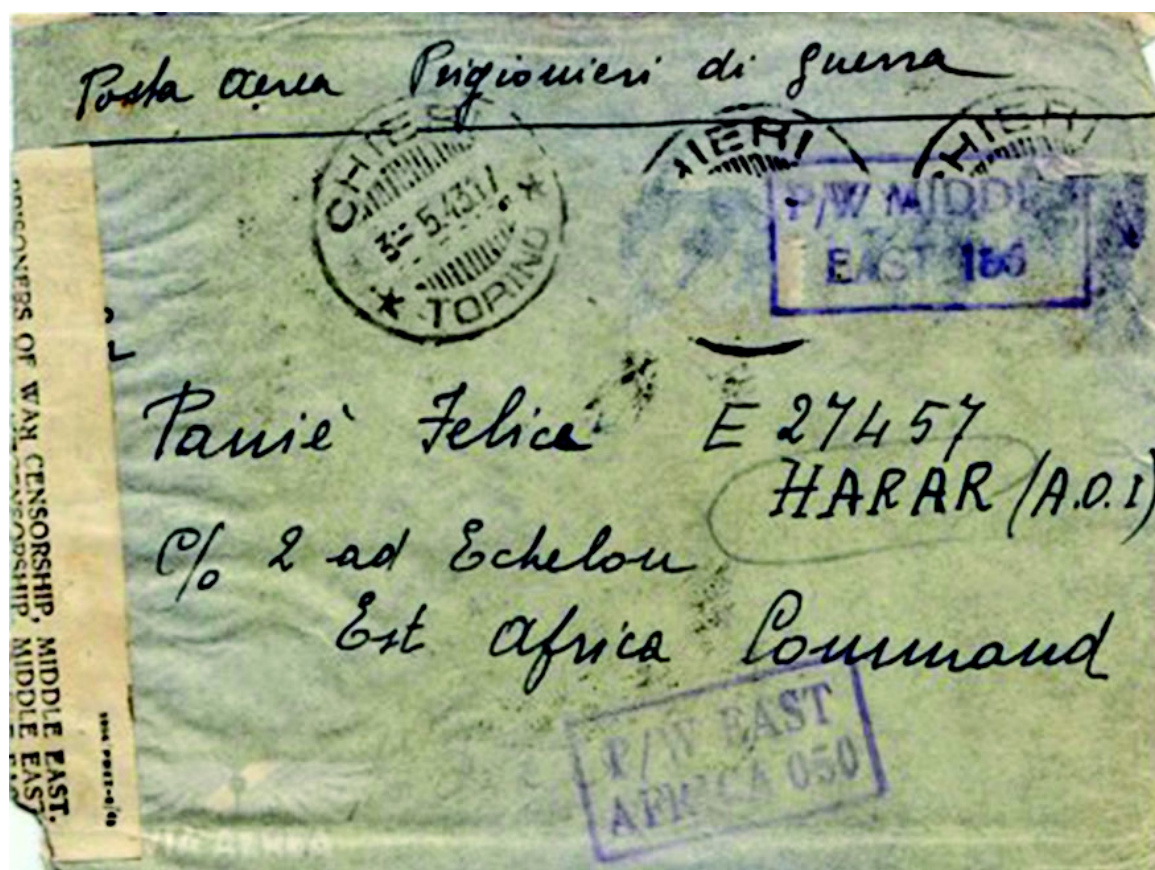 Posta aerea Prigionieri di guerra
CHIERI
TORINO
HIERI
CHIERI
P/W MIDDLE
EAST 186
Felice E 27457
HARAR (A.O.I)
C/o 2 ad Echelon
Est Africa Command
P/W EAST
AFRICA 050
PRISONERS OF WAR CENSORSHIP, MIDDLE EAST.
CENSORSHIP, MIDDLE EAST
VIA AEREA